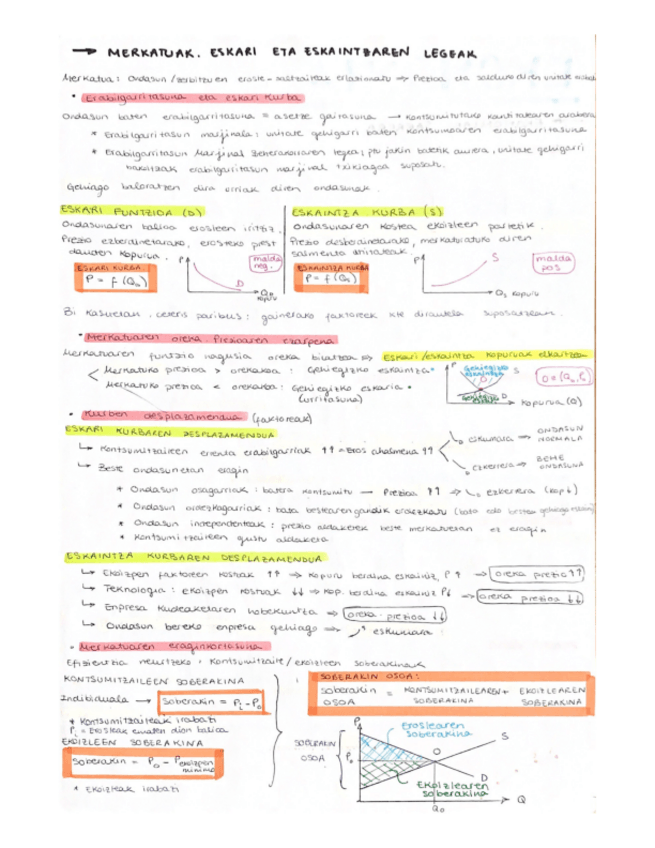 → MERKATUAK. ESKARI ETA ESKAINTZAREN LEGEAK
Merkatua: Ondasun /zerbitzuen erosle-saltzaileak erlazionatu → Prezioa eta salduko diren unitate
• Erabilgarritasuna eta eskari kurba
Ondasun baten erabilgarritasuna = asetze gaitasuna → kontsumitutako kantitatearen arabera
* Erabilgarritasun marjinala: unitate gehigarri baten kontsumoaren erabilgarritasuna
* Erabilgarritasun Marjinal Beherakorraren legea; ptu jakin batetik aurrera, unitate gehigarri
bakoitzak erabilgarritasun marjinal txikiagoa suposatu.
Gehiago baloratzen dira urriak diren ondasunak.
ESKARI FUNTZIOA (D)
Ondasunaren balioa erosleen iritziz.
Prezio ezberdinetarako, erosteko prest
dauden kopurua.
ESKARI KURBA
P = f (Q₀)
malda
neg.
P
D
Kopuru
ESKAINTZA KURBA (S)
Ondasunaren kostea ekoizleen partetik.
Prezio desberdinetarako, merkaturatuko diren
salmenta unitateak.
ESKAINTZA KURBA
P = f (Qₛ)
P
S
malda
pos
Qₛ kopuru
Bi kasuetan, ceteris paribus: gainerako faktoreek kte dirautela suposatzean.
• Merkatuaren oreka. Prezioaren ezarpena
Merkatuaren funtzio nagusia oreka bilatzea ⇒ Eskari/eskaintza kopuruak elkartzea
Merkatuko prezioa > orekakoa: Gehiegizko eskaintza
Merkatuko prezioa < orekakoa: Gehiegizko eskaria
(urritasuna)
P
Gehiegizko
eskaintza
S
O
Gehiegizko
eskaria
D
Kopurua (Q)
• Kurben desplazamendua (faktoreak)
ESKARI KURBAREN DESPLAZAMENDUA
↳ Kontsumitzaileen errenta erabilgarriak ↑↑ = Eros ahalmena ↑↑
↳ eskumara → ONDASUN
NORMALA
↳ ezkerrera → BEHE
ONDASUNA
↳ Beste ondasunetan eragin
* Ondasun osagarriak: batera kontsumitu — Prezioa ↑↑ → ↳ ezkerrera (kop↓)
* Ondasun ordezkagarriak: bata bestearengandik ordezkatu (bata edo bestea gehiago
* Ondasun independenteak: prezio aldaketek beste merkatuetan ez eragin
* Kontsumitzaileen gustu aldaketa
ESKAINTZA KURBAREN DESPLAZAMENDUA
↳ Ekoizpen faktoreen kosteak ↑↑ → kopuru berdina eskainiz, P ↑ → oreka prezio ↑↑
↳ Teknologia: ekoizpen kosteak ↓↓ → kop. berdina eskainiz P↓ → oreka prezioa ↓↓
↳ Enpresa kudeaketaren hobekuntza → oreka prezioa ↓↓
↳ Ondasun bereko enpresa gehiago → eskuinera
• Merkatuaren eraginkortasuna
Efizientzia neurtzeko, kontsumitzaile/ekoizleen soberakinak
KONTSUMITZAILEEN SOBERAKINA
Indibiduala → Soberakin = Pᵢ - P₀
* Kontsumitzaileak irabazi
Pᵢ = Erosleak ematen dion balioa
EKOIZLEEN SOBERAKINA
Soberakin = P₀ - P ekoizpen
minimo
* Ekoizleak irabazi
SOBERAKIN OSOA:
Soberakin
OSOA
= KONTSUMITZAILEAREN
SOBERAKINA
+ EKOIZLEAREN
SOBERAKINA
SOBERAKIN
OSOA
P
P₀
Eroslearen
soberakina
S
O
Ekoizlearen
soberakina
D
Q₀
Q